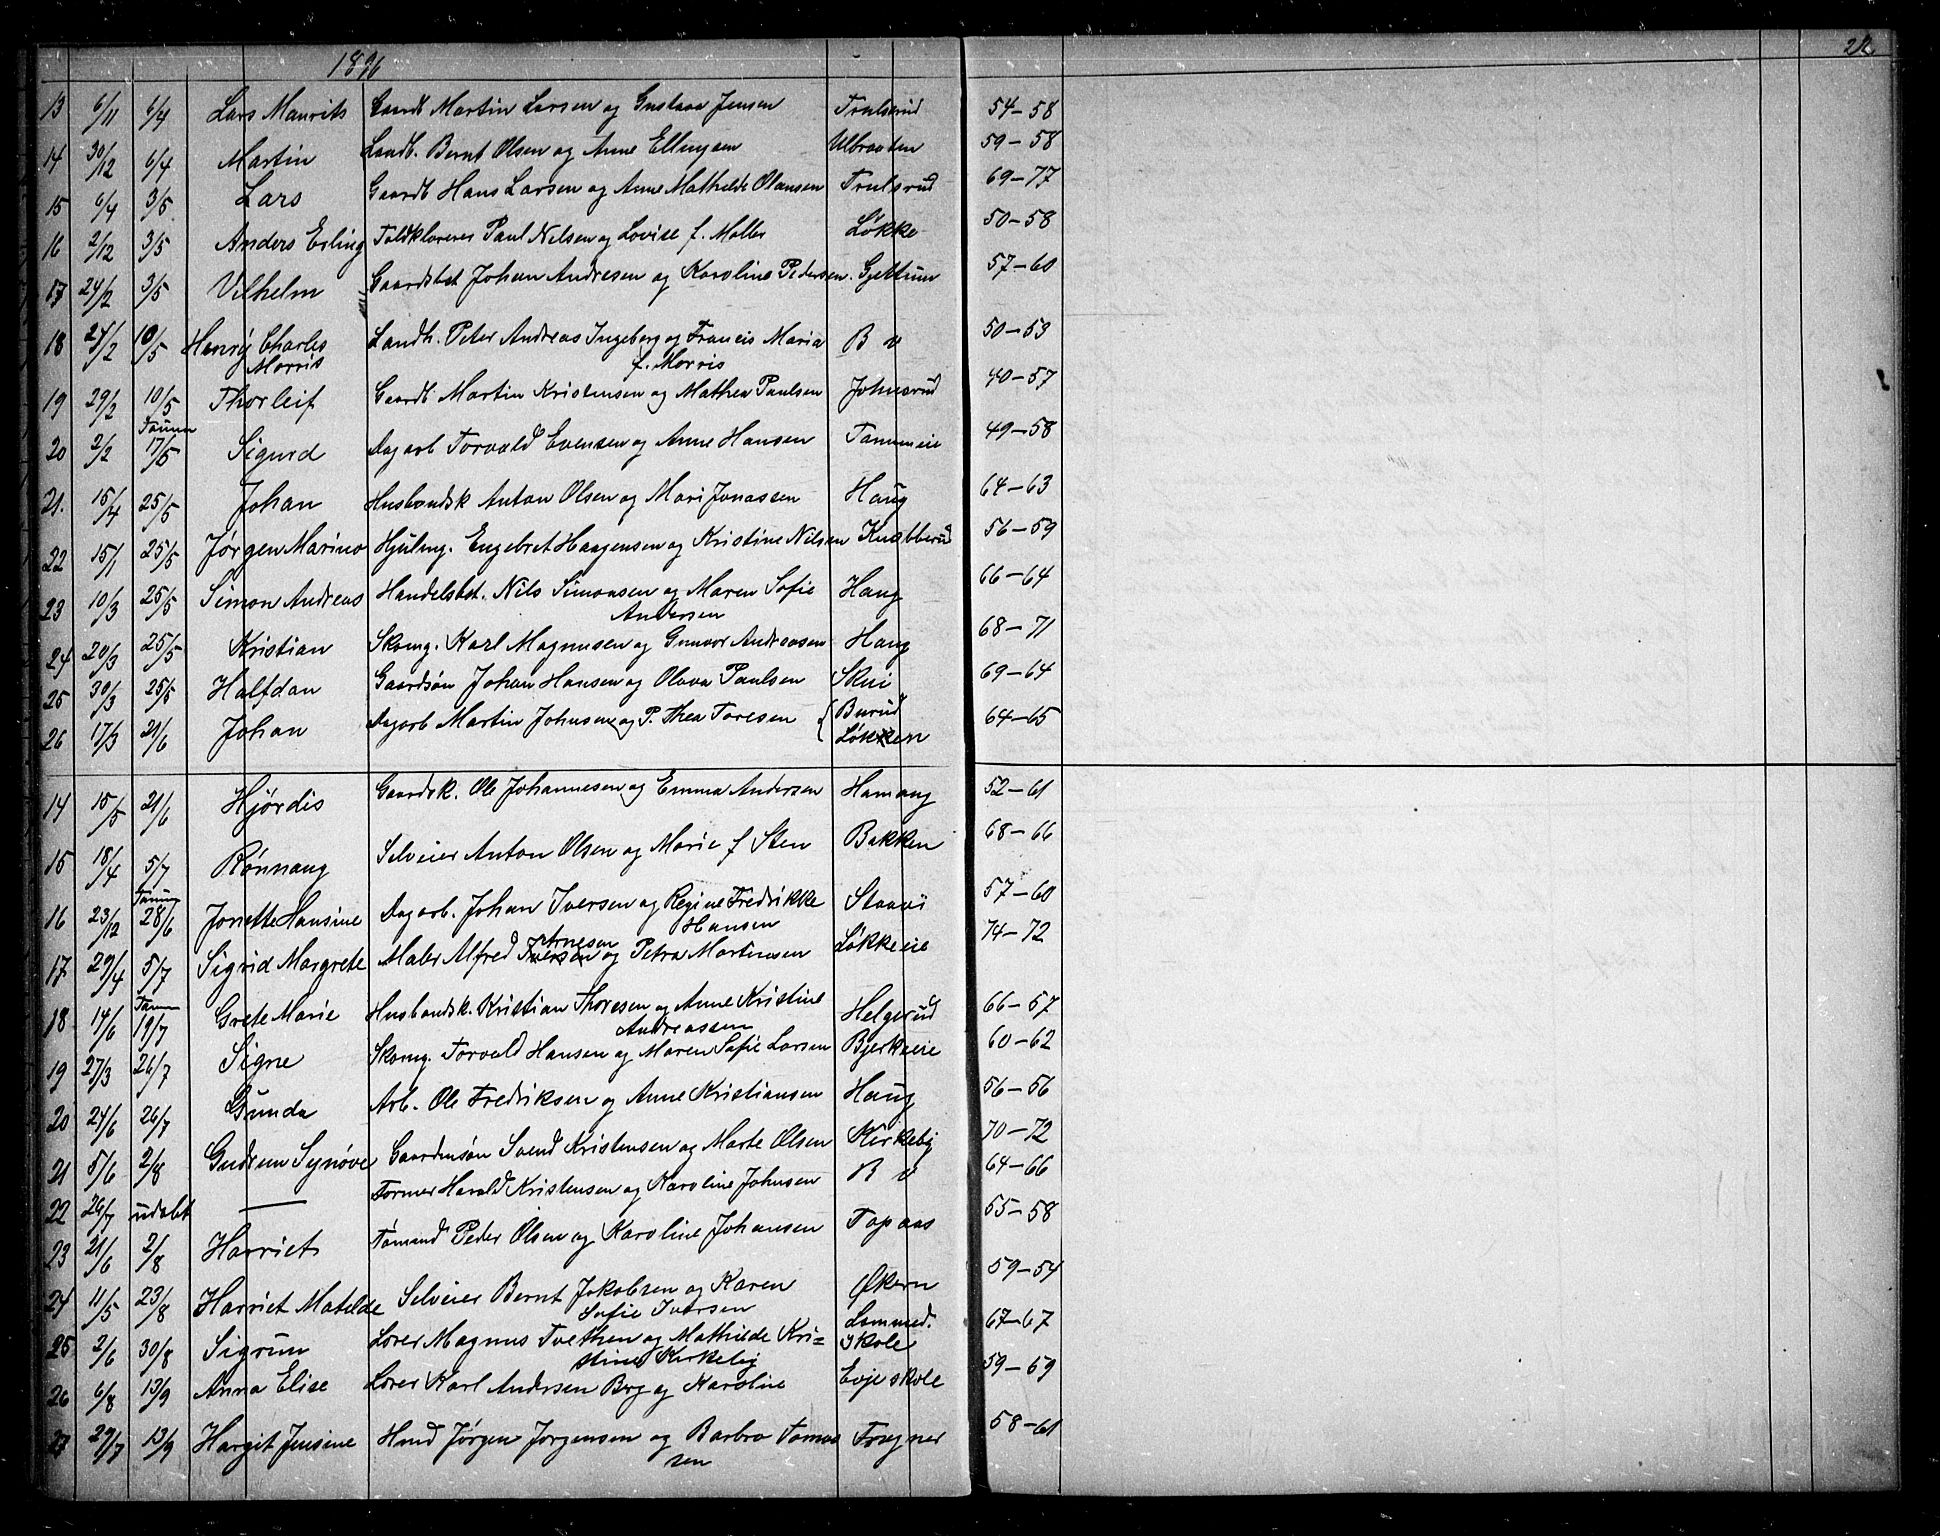 1896
22
13 6/11 6/4 Lars Maurits Gaardb Martin Larsen og Gustava Jensen Trulsrud 54-58
14 30/12 6/4 Martin Landb. Bernt Olsen og Anne Ellingsen Ulbraaten 59-58
15 6/4 3/5 Lars Gaardb Hans Larsen og Anne Mathilde Olausen Trulsrud 69-77
16 2/12 3/5 Anders Erling Toldklarerer Paul Nilsen og Lovise f. Møller Løkke 50-58
17 24/2 3/5 Vilhelm Gaardsbst Johan Andresen og Karoline Pedersen. Gjettum 57-60
18 27/2 10/5 Henry Charles Landh. Peter Andreas Ingeberg og Francis Maria B v 50-53
Morris f. Morris
19 29/2 10/5 Thorleif Gaardb Martin Kristensen og Mathea Paulsen Johnsrud 40-57
Tanum
20 2/2 17/5 Sigurd Dagarb Torvald Evensen og Anne Hansen Tanumeie 49-58
21. 15/4 25/5 Johan Husbondsk Anton Olsen og Mari Jonassen Haug 64-63
22 15/1 25/5 Jørgen Marino Hjulmg. Engebret Haagensen og Kristine Nilsen Knabberud 56-59
23 10/3 25/5 Simon Andreas Handelsbet. Nils Simonsen og Maren Sofie Haug 66-64
Andersen
24 20/3 25/5 Kristian Skomg. Karl Magnusen og Gunvor Andreasen Haug 68-71
25 30/3 25/5 Halfdan Gaardsøn Johan Hansen og Olava Paulsen Skui 69-64
26 17/3 21/6 Johan Dagarb Martin Johnsen og P. Thea Toresen { Burud 64-65
Løkken
14 15/5 21/6 Hjørdis Gaardsk. Ole Johannesen og Emma Andersen Hamang 52-61
15 18/4 5/7 Rønnaug Selveier Anton Olsen og Marie f Sten Bakken 68-66
Tanum
16 23/12 28/6 Jonette Hansine Dagarb. Johan Iversen og Regine Fredrikke Staavi 57-60
Hansen
Arnesen
17 29/4 5/7 Sigrid Margrete Maler Alfred Iversen og Petra Martinsen Løkkeeie 74-72
Tanum
18 14/6 19/7 Grete Marie Husbondsk. Kristian Thoresen og Anne Kristine Helgerud 66-57
Andreassen
19 27/3 26/7 Signe Skomg. Torvald Hansen og Maren Sofie Larsen Bjerkeeie 60-62
20 24/6 26/7 Gunda Arb. Ole Fredriksen og Anne Kristiansen Haug 56-56
21 5/6 2/8 Gudrun Synøve Gaardmsøn Svend Kristensen og Marte Olsen Kirkeby 70-72
22 26/7 udøbt — Former Harald Kristensen og Karoline Johnsen B v 64-66
23 21/6 2/8 Harriet Tømmd Peder Olsen og Karoline Johansen Topaas 55-58
24 11/5 23/8 Harriet Matilde Selveier Bernt Jakobsen og Karen Økern 59-54
Sofie Iversen
25 2/6 30/8 Sigrun Lærer Magnus Tvethen og Mathilde Kri= Lommed. 67-67
stine Kirkeby Skole
26 6/8 13/9 Anna Elise Lærer Karl Andersen Berg og Karoline Evje skole 59-69
27 29/7 13/9 Hargit Jensine Hmd Jørgen Jørgensen og Barbro Tomas Frogner 58-61
sen